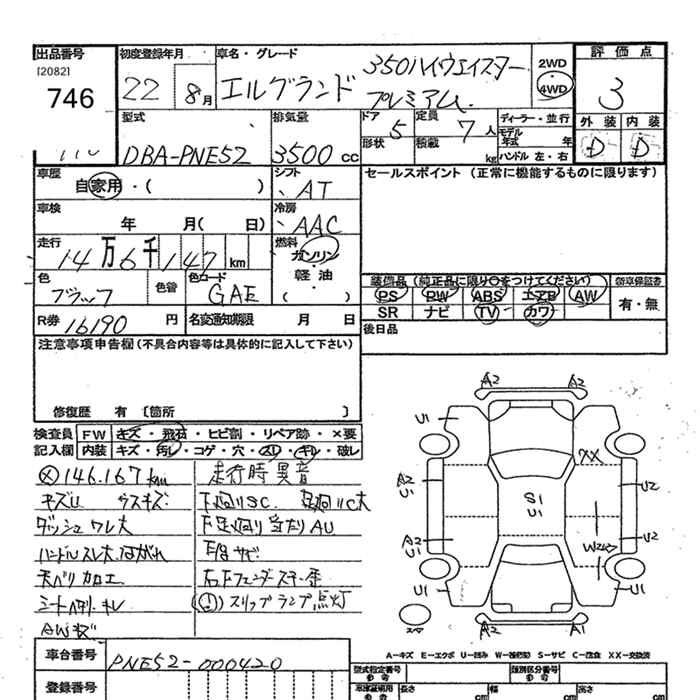 出品番号 初度登録年月 車名・グレード 評価点
[2082]
746
22 8月 エルグランド 350ハイウェイスター プレミアム 2WD 4WD 3
型式 排気量 ドア 定員 ディーラー・並行 外装 内装
DBA-PNE52 3500cc 5 7人 モデル年式 年 D D
形状 積載 kg ハンドル 左・右
車歴 シフト セールスポイント (正常に機能するものに限ります)
自家用・( ) AT
車検 冷房
年 月( 日) AAC
走行 燃料
14万6千147km ガソリン
軽油
( )
色 色替 色コード 装備品(純正品に限り○をつけてください) 新車保証書
ブラック GAE PS PW ABS エアB AW 有・無
SR ナビ TV カワ
R券 16190円 名変通知期限 月 日 後日品
注意事項申告欄(不具合内容等は具体的に記入して下さい)
修復歴 有 〔箇所 〕
検査員 FW キズ・飛石・ヒビ割・リペア跡・×要
記入欄 内装 キズ・汚レ・コゲ・穴・スレ・キレ・破レ
146.167km 走行時異音
キズU ウスキズ 下廻りSC
ダッシュワレ大 下廻り当たりAU
ハンドルスレ大 はがれ サビ
天ベリ加工
シート キレ スリップランプ点灯
A2 A2
U1
XX
A2 U1 S1 U1 U2
A2 U1 W2 U2
U1 U1
スペア A2 A1
A-キズ E-エクボ U-凹み W-補修跡 S-サビ C-腐食 XX-交換済
車台番号 PNE52-000420
型式指定番号 類別区分番号
参考 参考
登録番号 長さ cm 幅 cm 高さ cm